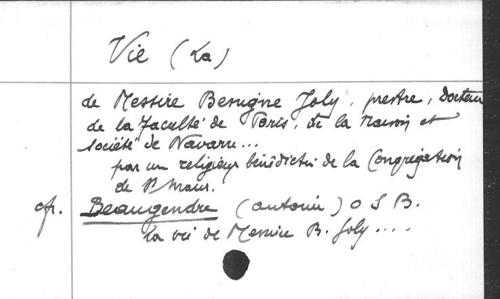 Vie (La)
de Messire Benigne Joly, prestre, Docteur
de la Faculté de Paris, de la Maison et
société de Navarre...
par un religieux bénédictin de la Congrégation
de St Maur.
cf. Beaugendre (Antonin) O S B.
La vie de Messire B. Joly ....